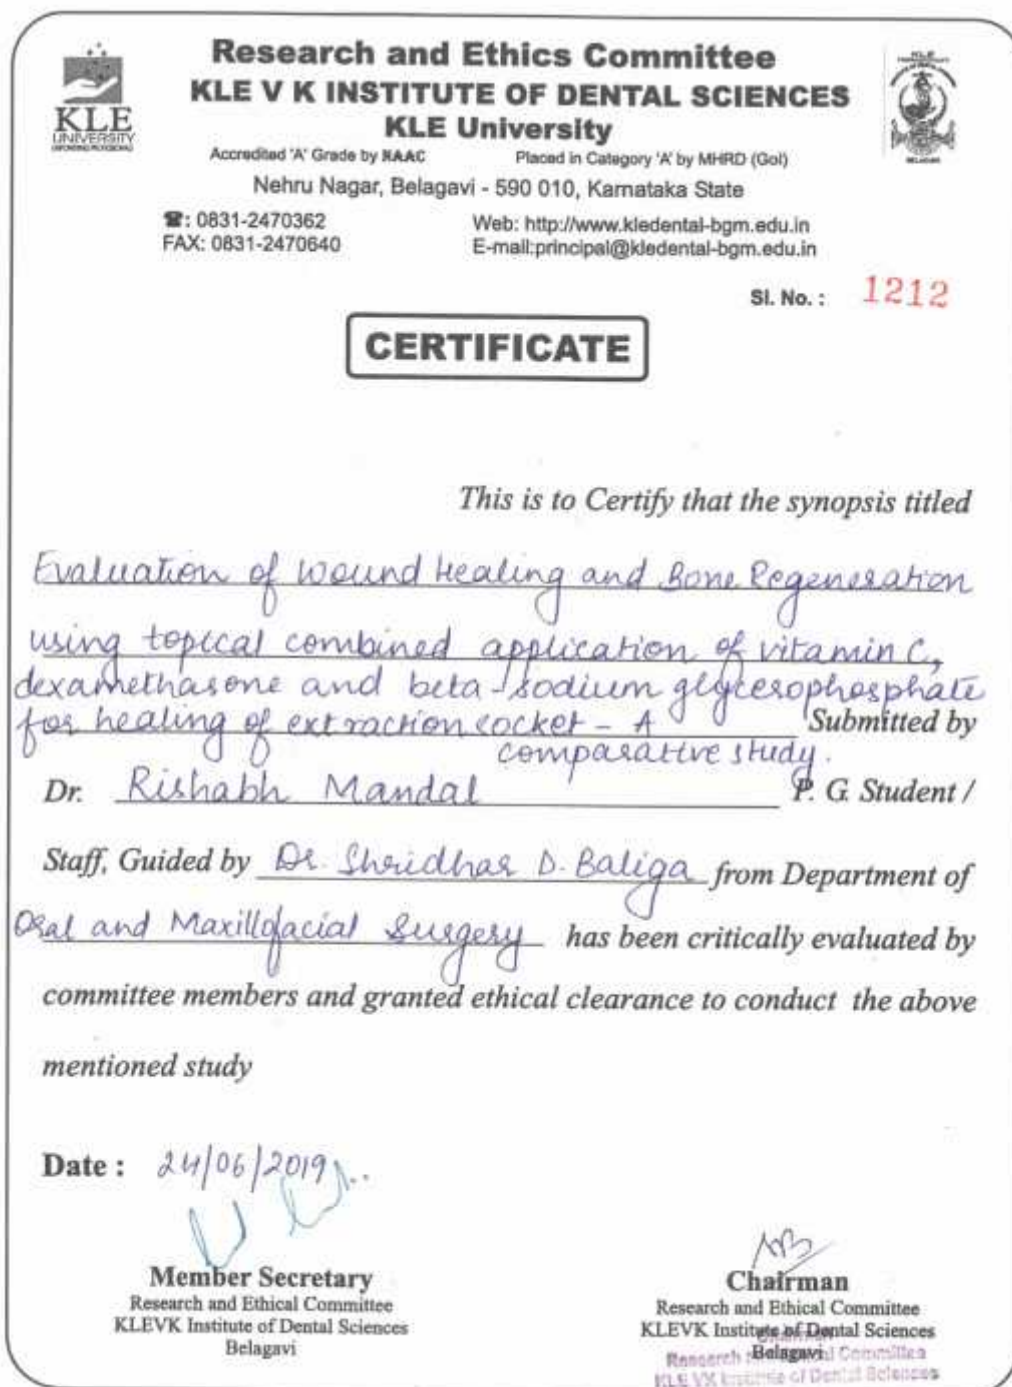 KLE
UNIVERSITY
KLE
BELAGAVI
Research and Ethics Committee
KLE V K INSTITUTE OF DENTAL SCIENCES
KLE University
Accredited 'A' Grade by NAAC Placed in Category 'A' by MHRD (GoI)
Nehru Nagar, Belagavi - 590 010, Karnataka State
☎: 0831-2470362 Web: http://www.kledental-bgm.edu.in
FAX: 0831-2470640 E-mail:principal@kledental-bgm.edu.in
Sl. No. : 1212
CERTIFICATE
This is to Certify that the synopsis titled
Evaluation of Wound Healing and Bone Regeneration
using topical combined application of vitamin C,
dexamethasone and beta-sodium glycerophosphate
for healing of extraction socket - A Submitted by
comparative study.
Dr. Rishabh Mandal P. G. Student /
Staff, Guided by Dr. Shridhar D. Baliga from Department of
Oral and Maxillofacial Surgery has been critically evaluated by
committee members and granted ethical clearance to conduct the above
mentioned study
Date : 24/06/2019
Member Secretary
Research and Ethical Committee
KLEVK Institute of Dental Sciences
Belagavi
Chairman
Research and Ethical Committee
KLEVK Institute of Dental Sciences
Belagavi
Chairman
Research and Ethical Committee
KLE VK Institute of Dental Sciences